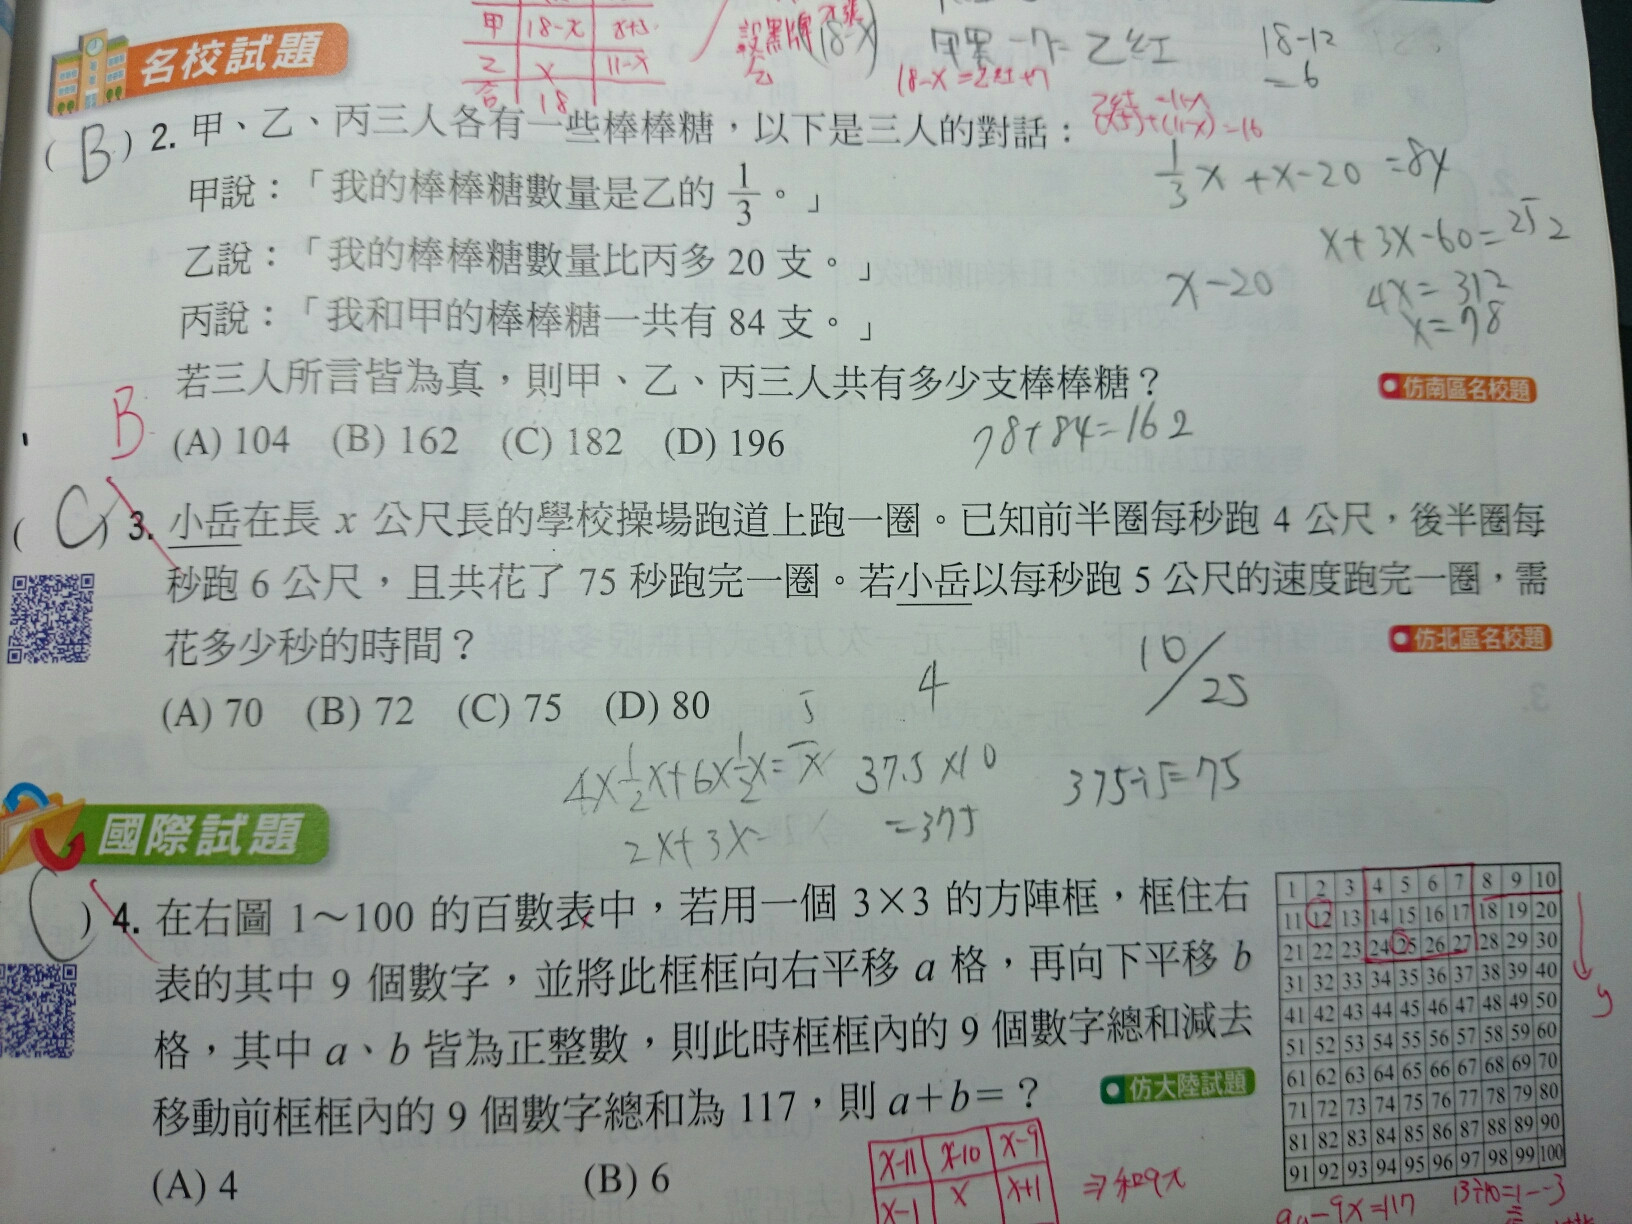 甲 18-x x+5
乙 x 11-x
合 18
設黑牌 (18-x)
甲黑-7=乙紅
18-x=乙紅+7
18-12
=6
名校試題
(B) 2. 甲、乙、丙三人各有一些棒棒糖，以下是三人的對話：
甲說：「我的棒棒糖數量是乙的 1/3。」
乙說：「我的棒棒糖數量比丙多 20 支。」
丙說：「我和甲的棒棒糖一共有 84 支。」
若三人所言皆為真，則甲、乙、丙三人共有多少支棒棒糖？
仿南區名校題
B
(A) 104 (B) 162 (C) 182 (D) 196
1/3x+x-20=84
x+3x-60=252
x-20
4x=312
x=78
78+84=162
(C) 3. 小岳在長 x 公尺長的學校操場跑道上跑一圈。已知前半圈每秒跑 4 公尺，後半圈每
秒跑 6 公尺，且共花了 75 秒跑完一圈。若小岳以每秒跑 5 公尺的速度跑完一圈，需
花多少秒的時間？
仿北區名校題
(A) 70 (B) 72 (C) 75 (D) 80
5
4
10/25
4×1/2x+6×1/2x=
37.5×10
=375
375÷5=75
2x+3x=
國際試題
(C) 4. 在右圖 1～100 的百數表中，若用一個 3×3 的方陣框，框住右
表的其中 9 個數字，並將此框框向右平移 a 格，再向下平移 b
格，其中 a、b 皆為正整數，則此時框框內的 9 個數字總和減去
移動前框框內的 9 個數字總和為 117，則 a+b=？
仿大陸試題
(A) 4 (B) 6
1 2 3 4 5 6 7 8 9 10
11 12 13 14 15 16 17 18 19 20
21 22 23 24 25 26 27 28 29 30
31 32 33 34 35 36 37 38 39 40
41 42 43 44 45 46 47 48 49 50
51 52 53 54 55 56 57 58 59 60
61 62 63 64 65 66 67 68 69 70
71 72 73 74 75 76 77 78 79 80
81 82 83 84 85 86 87 88 89 90
91 92 93 94 95 96 97 98 99 100
y
x-11 x-10 x-9
x-1 x x+1
⇒和9x
-9x=117
13÷10=1…3